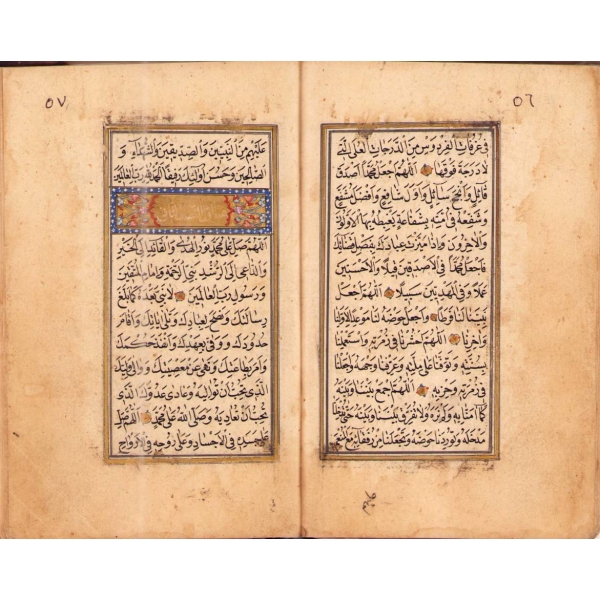 ٥٦
في غرفات الفردوس من الدرجات العلى التي
لا درجة فوقها اللهم اجعل محمدا اصدق
قائل وانجح سائل واول شافع وافضل مشفع
وشفعه في امته بشفاعة يغبطه بها الاولون
والاخرون واذا ميزت عبادك بفصل قضائك
فاجعل محمدا في الاصدقين قيلا والاحسنين
عملا وفي المهديين سبيلا اللهم اجعل
نبينا لنا فرطا واجعل حوضه لنا موعدا لاولنا
واخرنا اللهم احشرنا في زمرته واستعملنا
بسنته وتوفنا على ملته وعرفنا وجهه واجعلنا
في زمرته وحزبه اللهم اجمع بيننا وبينه
كما آمنا به ولم نره ولا تفرق بيننا وبينه حتى تدخلنا
مدخله وتوردنا حوضه وتجعلنا من رفقائه مع المنعم
عليهم
٥٧
عليهم من النبيين والصديقين والشهداء و
الصالحين وحسن اولئك رفيقا الحمد لله رب العالمين
اللهم صل على محمد نور الهدى والقائد الى الخير
والداعي الى الرشد نبي الرحمة وامام المتقين
ورسول رب العالمين لا نبي بعده كما بلغ
رسالتك ونصح لعبادك وتلى اياتك واقام
حدودك ووفى بعهدك وانفذ حكمك
وامر بطاعتك ونهى عن معصيتك ووالى وليك
الذي تحب ان تواليه وعادى عدوك الذي
تحب ان تعاديه وصلى الله على محمد اللهم صل
على جسده في الاجساد وعلى روحه في الارواح